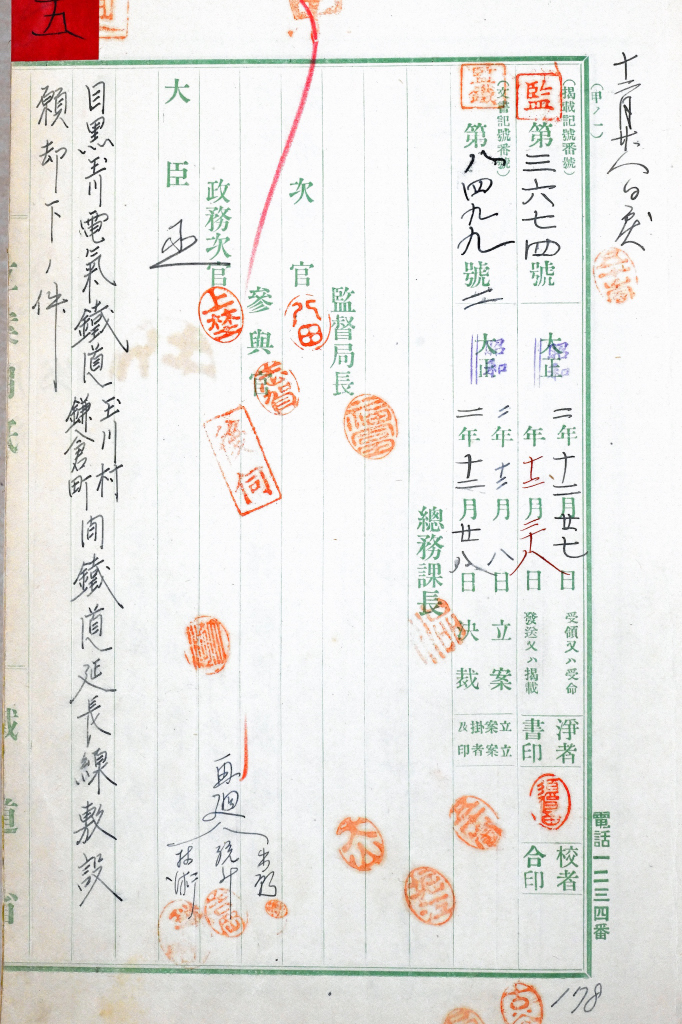 五
十二月廿八日戻
(甲ノ一)
(掲載記號番號)
監
第三六七四號
昭和
大正
二年十二月廿七日
受領又ハ受命
年十二月二十八日
發送又ハ掲載
淨書者印
校合者印
電話一二三四番
(文書記號番號)
監鐵
第八四九九號ノ二
昭和
大正
二年十二月八日立案
二年十二月廿八日決裁
立案立案
及掛者印
總務課長
監督局長
次官
八田
參與官
志賀
政務次官
上埜
後伺
大臣
再廻
統計
技術
目黒玉川電氣鐵道玉川村
鎌倉町間鐵道延長線敷設
願却下ノ件
鐵道省
178